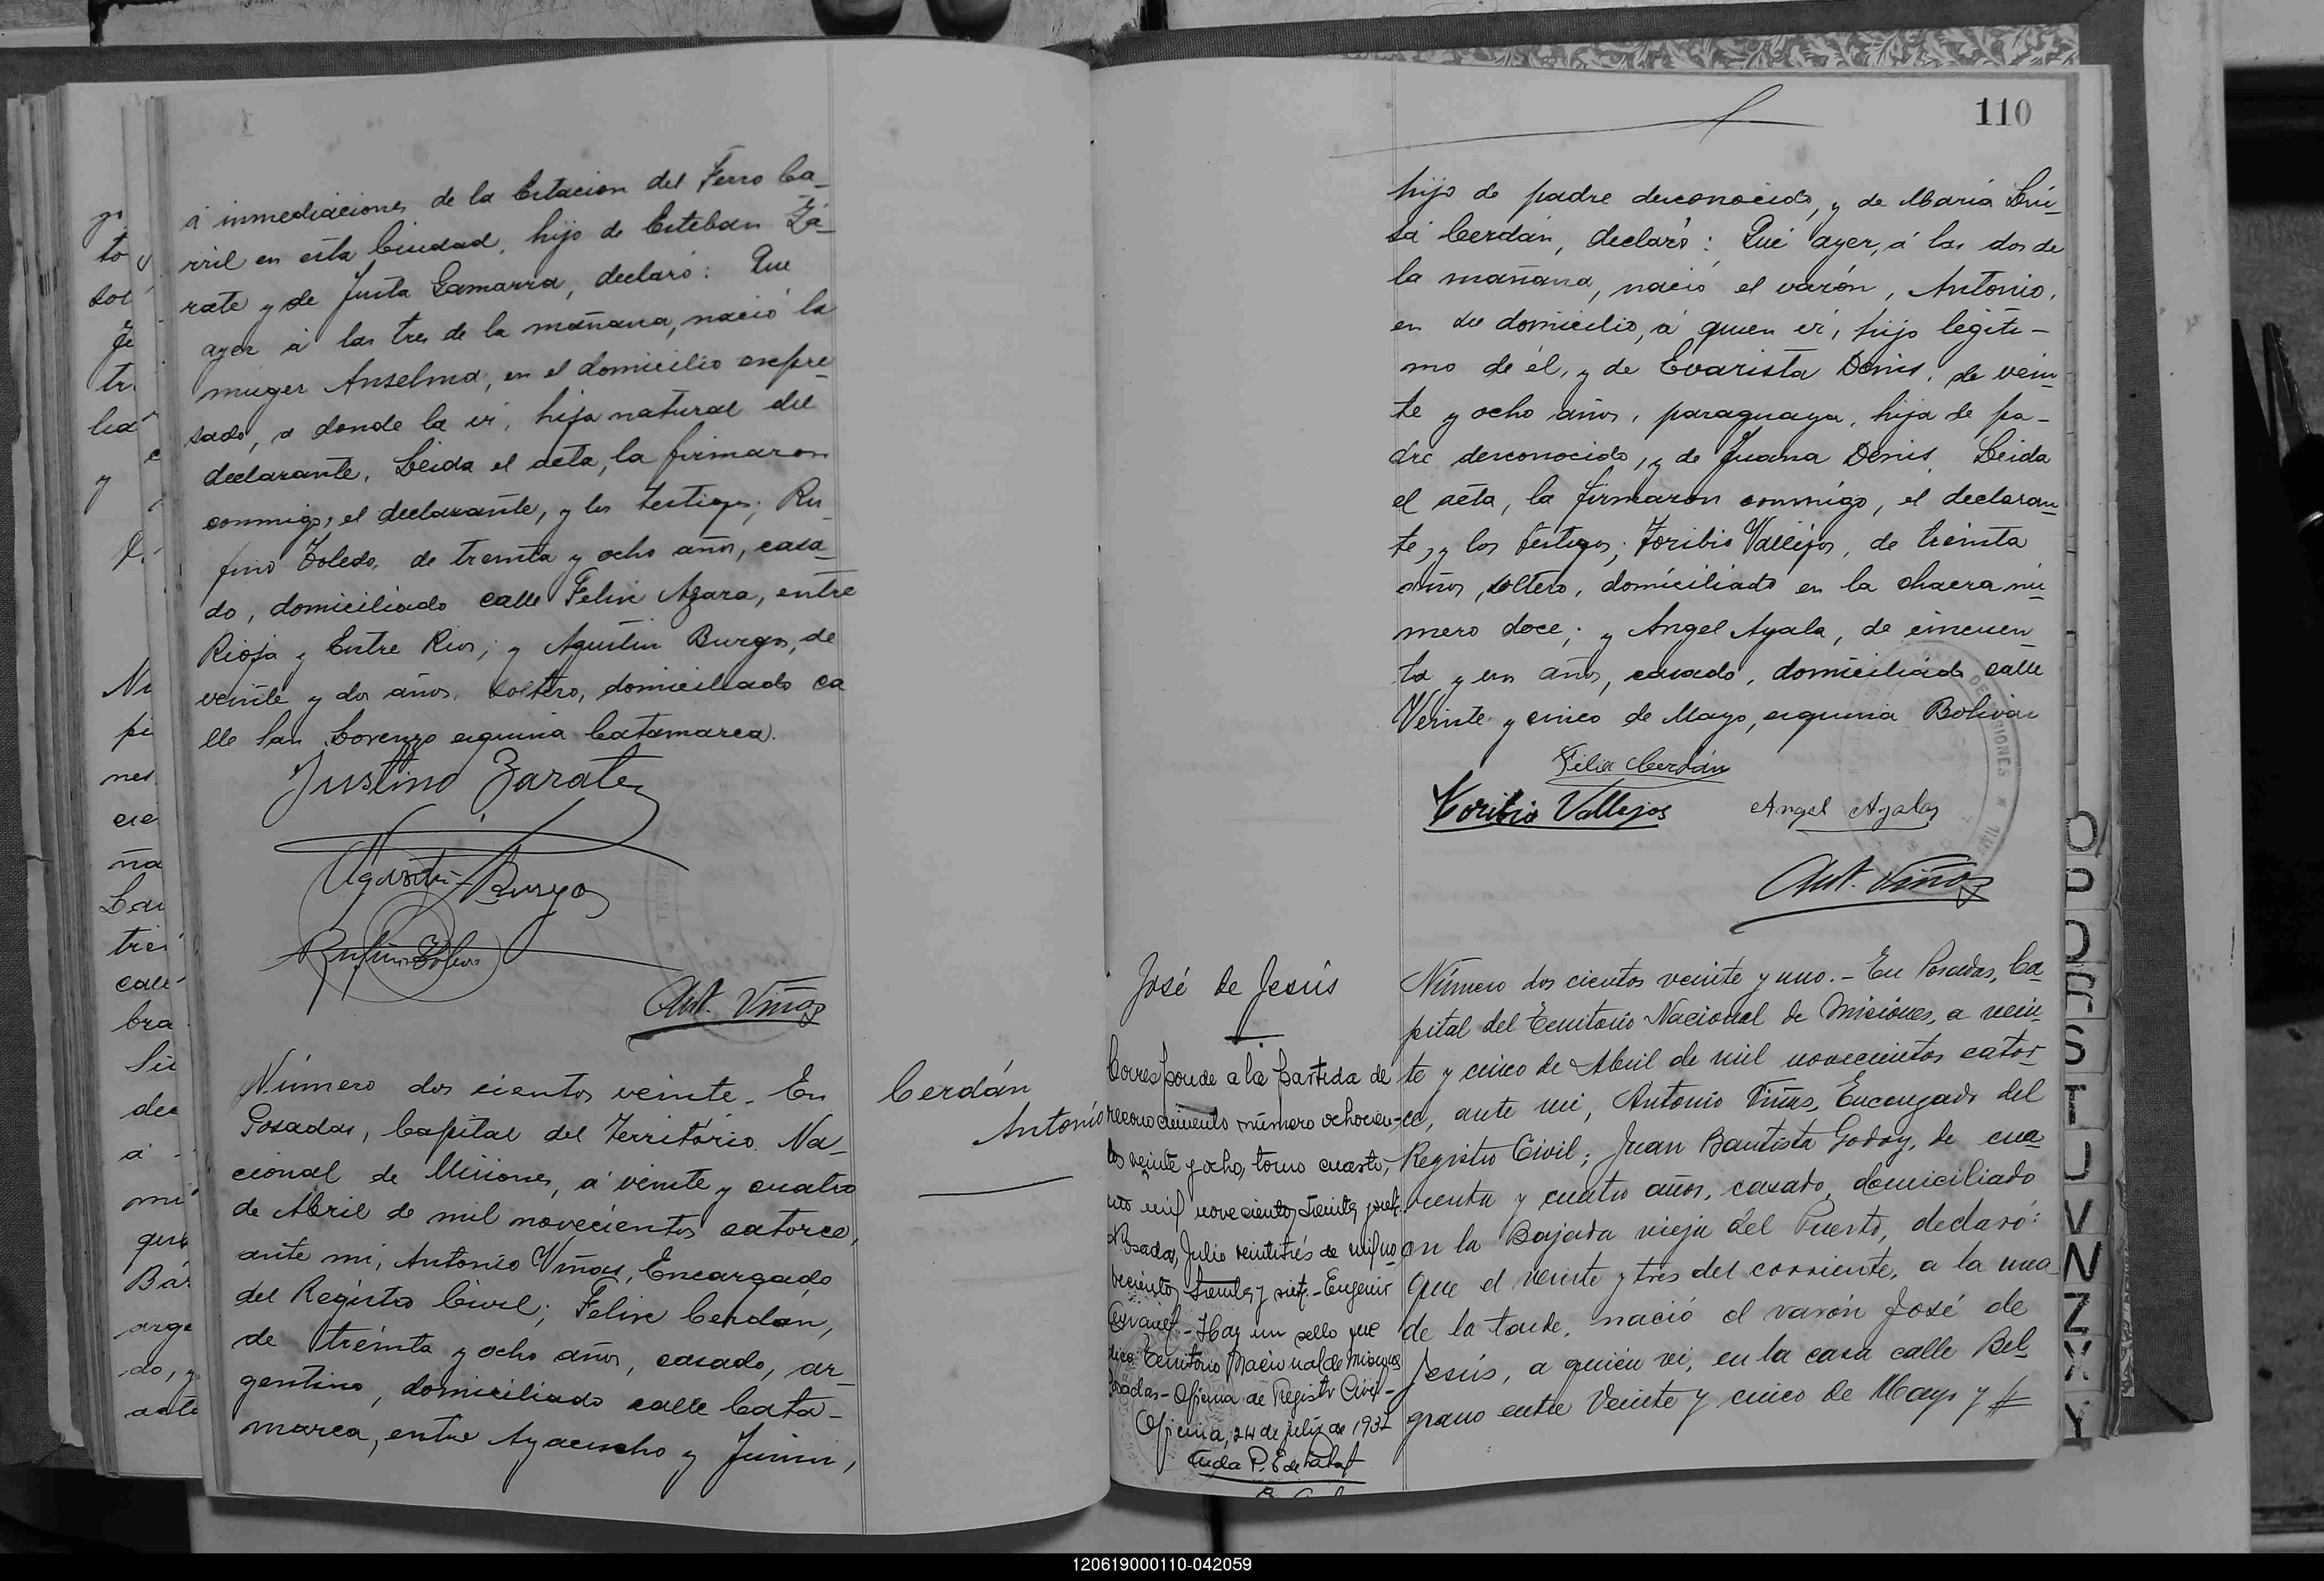 á inmediaciones de la Estacion del Ferro Ca_
rril en esta Ciudad, hijo de Esteban Zá_
rate y de Justa Gamarra, declaró: Que
ayer á las tres de la mañana, nació la
muger Anselma, en el domicilio expre_
sado, a donde la vi, hija natural del
declarante. Leida el acta, la firmaron
conmigo, el declarante, y los testigos; Ru_
fino Toledo, de treinta y ocho años, casa_
do, domiciliado calle Felix Azara, entre
Rioja y Entre Rios; y Agustin Burgos, de
veinte y dos años, soltero, domiciliado ca
lle San Lorenzo esquina Catamarca.
Justino Zarate
Agustin Burgos
Rufino Toledo
Ant. Viñas
Número dos cientos veinte. En
Posadas, Capital del Territorio Na_
cional de Misiones, á veinte y cuatro
de Abril de mil novecientos catorce,
ante mi, Antonio Viñas, Encargado
del Registro Civil; Felix Cerdan,
de treinta y ocho años, casado, ar_
gentino, domiciliado calle Cata_
marca, entre Ayacucho y Junin,
Cerdán
Antonio
110
hijo de padre desconocido, y de Maria Lui_
sa Cerdán, declaró: Que ayer, á las dos de
la mañana, nació el varón, Antonio,
en su domicilio, á quien vi, hijo legiti_
mo de él, y de Evarista Denis, de vein_
te y ocho años, paraguaya, hija de pa_
dre desconocido, y de Juana Denis. Leida
el acta, la firmaron conmigo, el declaran_
te, y los testigos; Toribio Vallejos, de treinta
años, soltero, domiciliado en la chacra nú_
mero doce; y Angel Ayala, de cincuen
ta y un años, casado, domiciliado calle
Veinte y cinco de Mayo, esquina Bolivar
Felix Cerdán
Toribio Vallejos
Angel Ayala
Ant. Viñas
José de Jesús
Corresponde a la partida de
reconocimiento número ochocien-
tos veinte y ocho, tomo cuarto,
mil novecientos treinta y siete
Posadas, Julio veintitrés de mil no-
vecientos treinta y siete - Eugenio
- Hay un sello que
dice: Territorio Nacional de Misiones
Posadas - Oficina de Registro Civil -
Oficina, 24 de julio de 1937
Número dos cientos veinte y uno. - En Posadas, Ca_
pital del Territorio Nacional de Misiones, a vein_
te y cinco de Abril de mil novecientos cator_
ce, ante mi, Antonio Viñas, Encargado del
Registro Civil; Juan Bautista Godoy, de cua
renta y cuatro años, casado, domiciliado
en la Bajada vieja del Puerto, declaró:
Que el veinte y tres del corriente, a la una
de la tarde, nació el varón José de
Jesús, a quien vi, en la casa calle Bel_
grano entre Veinte y cinco de Mayo y
O
P
Q
R
S
T
U
V
N
Z
X
Y
120619000110-042059